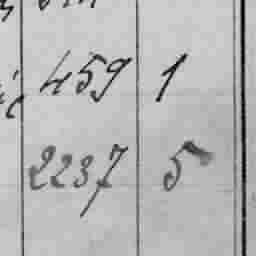 459 1
2237 5